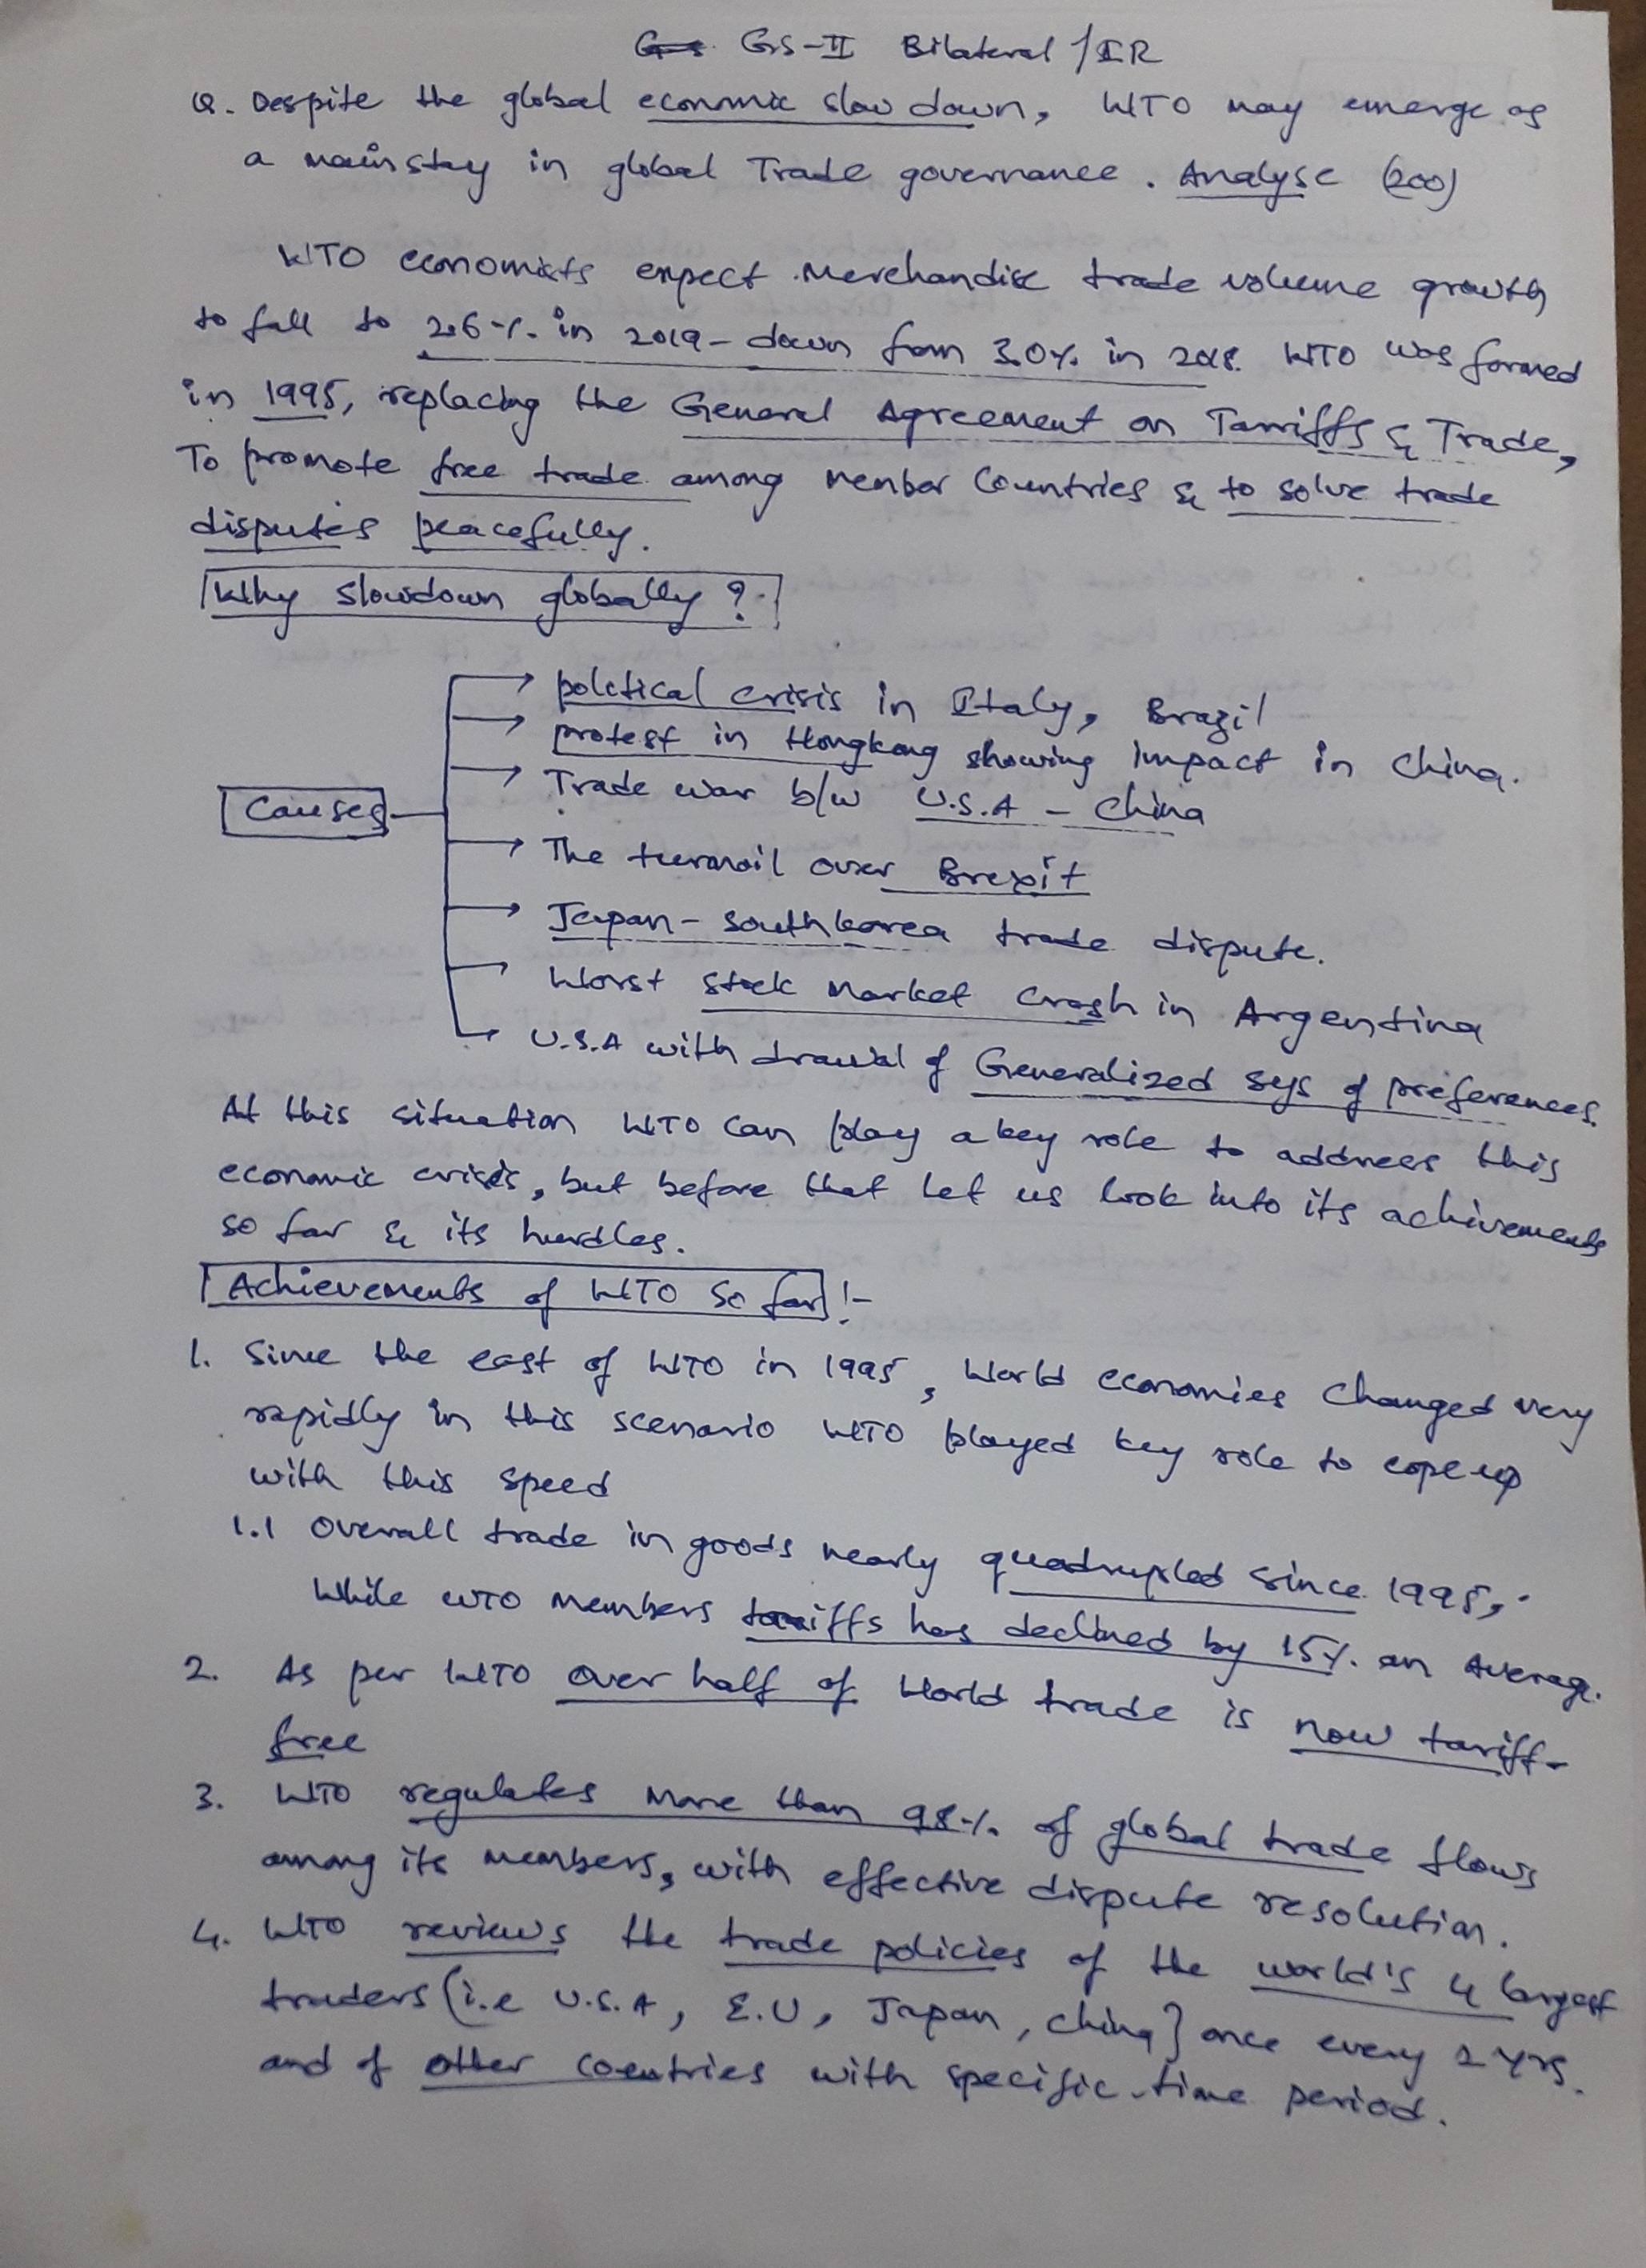 GS-II Bilateral/IR
Q. Despite the global economic slow down, WTO may emerge as
a mainstay in global Trade governance. Analyse (200)
WTO economists expect Merchandise trade volume growth
to fall to 2.6%. in 2019 - down from 3.0%. in 2018. WTO was formed
in 1995, replacing the General Agreement on Tarriffs & Trade,
To promote free trade among member Countries & to solve trade
disputes peacefully.
Why slowdown globally ?
Causes
political crisis in Italy, Brazil
protest in Hongkong showing impact in China.
Trade war b/w U.S.A - China
The turmoil over Brexit
Japan - South korea trade dispute.
Worst stock Market crash in Argentina
U.S.A with drawal of Generalized sys of preferences.
At this situation WTO can play a key role to address this
economic crisis, but before that let us look into its achivements
so far & its hurdles.
Achievements of WTO so far :-
1. Since the east of WTO in 1995, World economies changed very
rapidly in this scenario WTO played key role to cope up
with this speed
1.1 Overall trade in goods nearly quadrupled since 1995,
While WTO members tariffs has declined by 15%. an Average.
2. As per WTO over half of World trade is now tariff-
free
3. WTO regulates more than 98%. of global trade flows
among its members, with effective dispute resolution.
4. WTO reviews the trade policies of the world's 4 largest
traders (i.e U.S.A, E.U, Japan, China} once every 2 yrs.
and of other countries with specific time period.